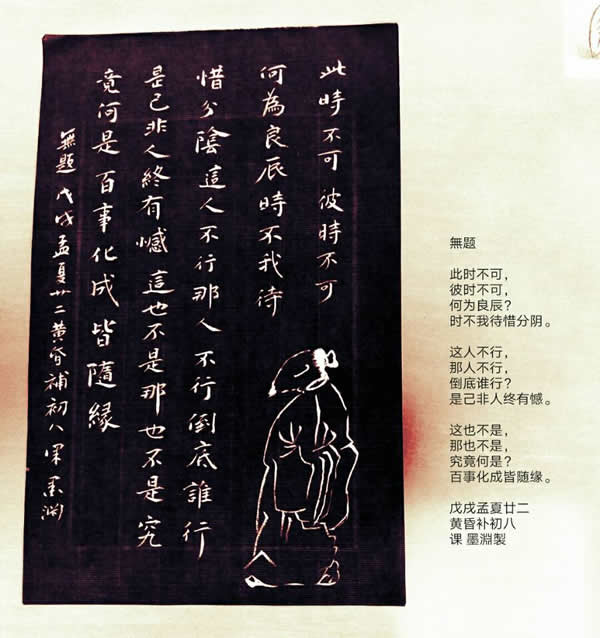 此時不可彼時不可
何為良辰時不我待
惜分陰這人不行那人不行倒底誰行
是己非人終有憾這也不是那也不是究
竟何是百事化成皆隨緣
無题戊戌孟夏廿二黄昏補初八课墨渊
無题
此时不可，
彼时不可，
何为良辰？
时不我待惜分阴。
这人不行，
那人不行，
倒底谁行？
是己非人终有憾。
这也不是，
那也不是，
究竟何是？
百事化成皆随缘。
戊戌孟夏廿二
黄昏补初八
课 墨淵製